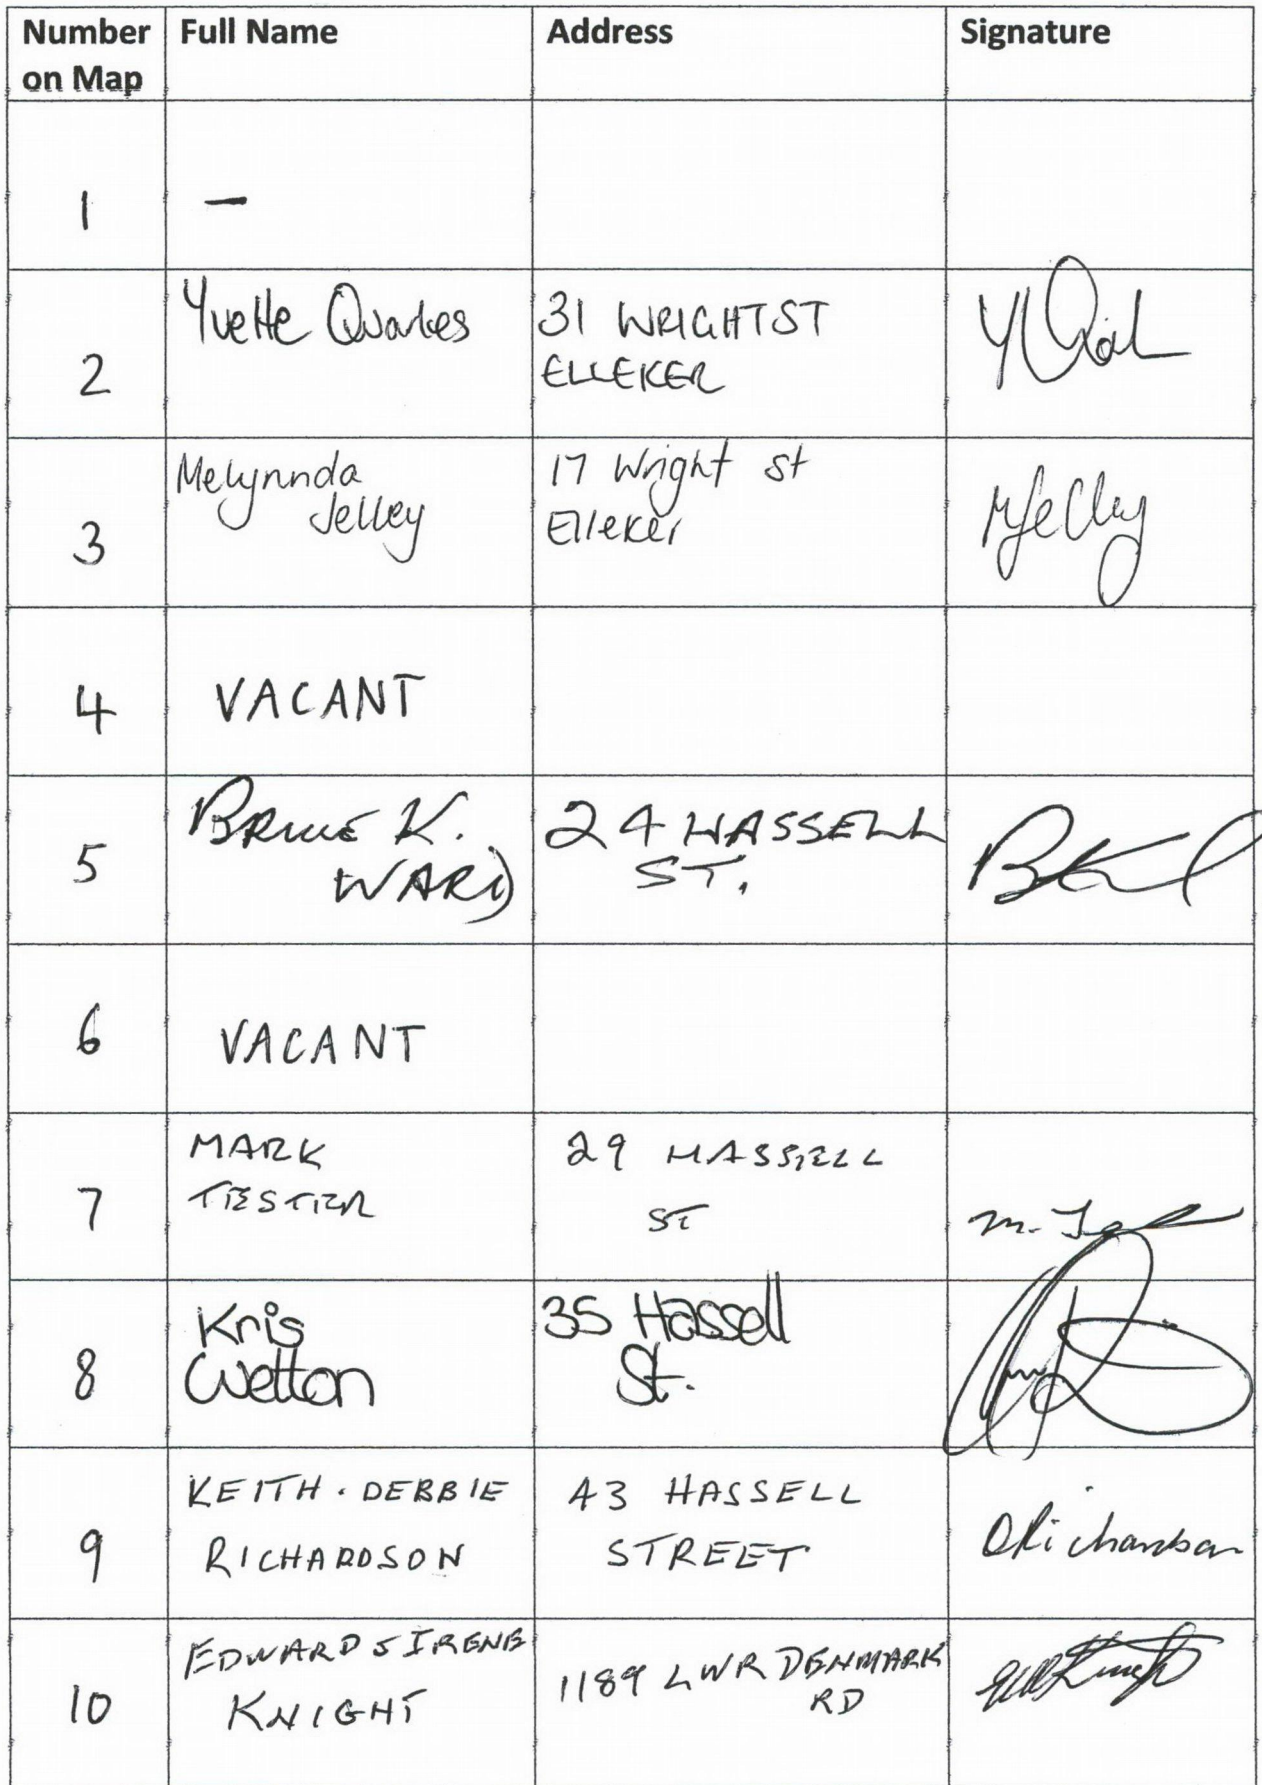 Number on Map Full Name Address Signature
1 —
2 Yvette Quarles 31 WRIGHT ST
ELLEKER
3 Melynnda Jelley 17 Wright st
Elleker
MJelley
4 VACANT
5 BRUCE K. WARD 24 HASSELL
ST.
6 VACANT
7 MARK TESTER 29 HASSELL
ST
8 Kris Wetton 35 Hassell
St.
9 KEITH · DEBBIE RICHARDSON 43 HASSELL
STREET
DRichardson
10 EDWARD & IRENE KNIGHT 1189 LWR DENMARK
RD